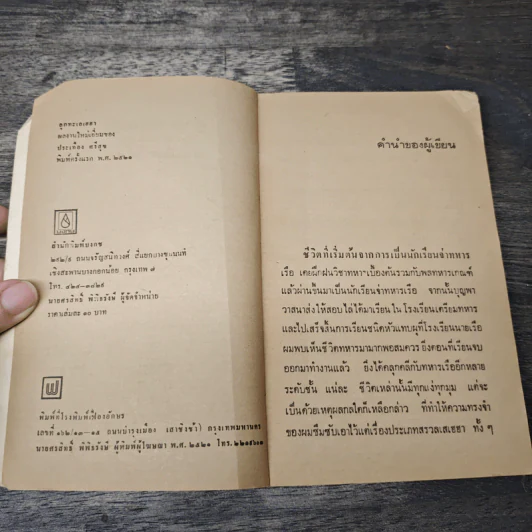 สุททะเอเตสา
ผลงานใหม่เยี่ยมของ
ประเทือง ศรีสุข
พิมพ์ครั้งแรก พ.ศ. ๒๕๒๑
สำนักพิมพ์บงกช
๒๙๒/๕ ถนนจรัญสนิทวงศ์
เชิงสะพานบางกอกน้อย กรุงเทพ ๗
โทร. ๔๒๔-๓๔๒๕
นายศรสิทธิ์ พิพิธรังษี ผู้จัดจำหน่าย
ราคาเล่มละ ๑๐ บาท
พิมพ์ที่โรงพิมพ์เฟื่องอักษร
เลขที่ ๑๖๒/๑๓-๑๕ ถนนบำรุงเมือง (เสาชิงช้า) กรุงเทพมหานคร
นายศรสิทธิ์ พิพิธรังษี ผู้พิมพ์ผู้โฆษณา พ.ศ. ๒๕๒๑ โทร.
คำนำของผู้เขียน
ชีวิตที่เริ่มต้นจากการเป็นนักเรียนจ่าทหาร
เรือ เคยฝึกฝนวิชาทหารเบื้องต้นรวมกับพลทหารเกณฑ์
แล้วผ่านขึ้นมาเป็นนักเรียนจ่าทหารเรือ จากนั้นบุญพา
วาสนาส่งให้สอบไล่ได้มาเรียนในโรงเรียนเตรียมทหาร
และไปเสร็จสิ้นการเรียนชนิดหัวแทบผุที่โรงเรียนนายเรือ
ผมพบเห็นชีวิตทหารมามากพอสมควร ยิ่งตอนที่เรียนจบ
ออกมาทำงานแล้ว ยิ่งได้คลุกคลีกับทหารเรืออีกหลาย
ระดับชั้น แน่ละ ชีวิตเหล่านั้นมีทุกแง่ทุกมุม แต่จะ
เป็นด้วยเหตุผลกลใดก็เหลือกล่าว ที่ทำให้ความทรงจำ
ของผมซึมซับเอาไว้แต่เรื่องประเภทสรวลเสเฮฮา ทั้ง ๆ